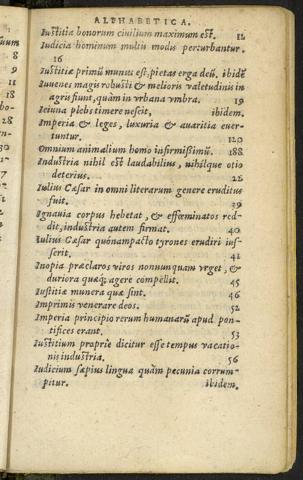 ALPHABETICA.
Iustitia bonorum ciuilium maximum est. 12
Iudicia hominum multis modis perturbantur.
16
Iustitiæ primũ munus est, pietas erga deũ. ibidẽ
Iuuenes magis robusti & melioris valetudinis in
agris fiunt, quàm in vrbana vmbra. 19
Ieiuna plebs timere nescit, ibidem.
Imperia & leges, luxuria & auaritia euer-
tuntur. 120
Omnium animalium homo infirmißimũ. 188
Industria nihil est laudabilius, nihilque otio
deterius. 28
Iulius Cæsar in omni literarum genere eruditus
fuit. 39
Ignauia corpus hebetat, & effœminatos red-
dit, industria autem firmat. 40
Iulius Cæsar quónampacto tyrones erudiri ius-
serit. 41
Inopia præclaros viros nonnunquam vrget, &
duriora quæq; agere compellit. 45
Iustitiæ munera quæ sint. 46
Imprimis venerare deos. 52
Imperia principio rerum humanarũ apud pon-
tifices erant. 53
Iustitium propriè dicitur esse tempus vacatio-
nis industria. 56
Iudicium sæpius lingua quàm pecunia corrum-
pitur. ibidem.